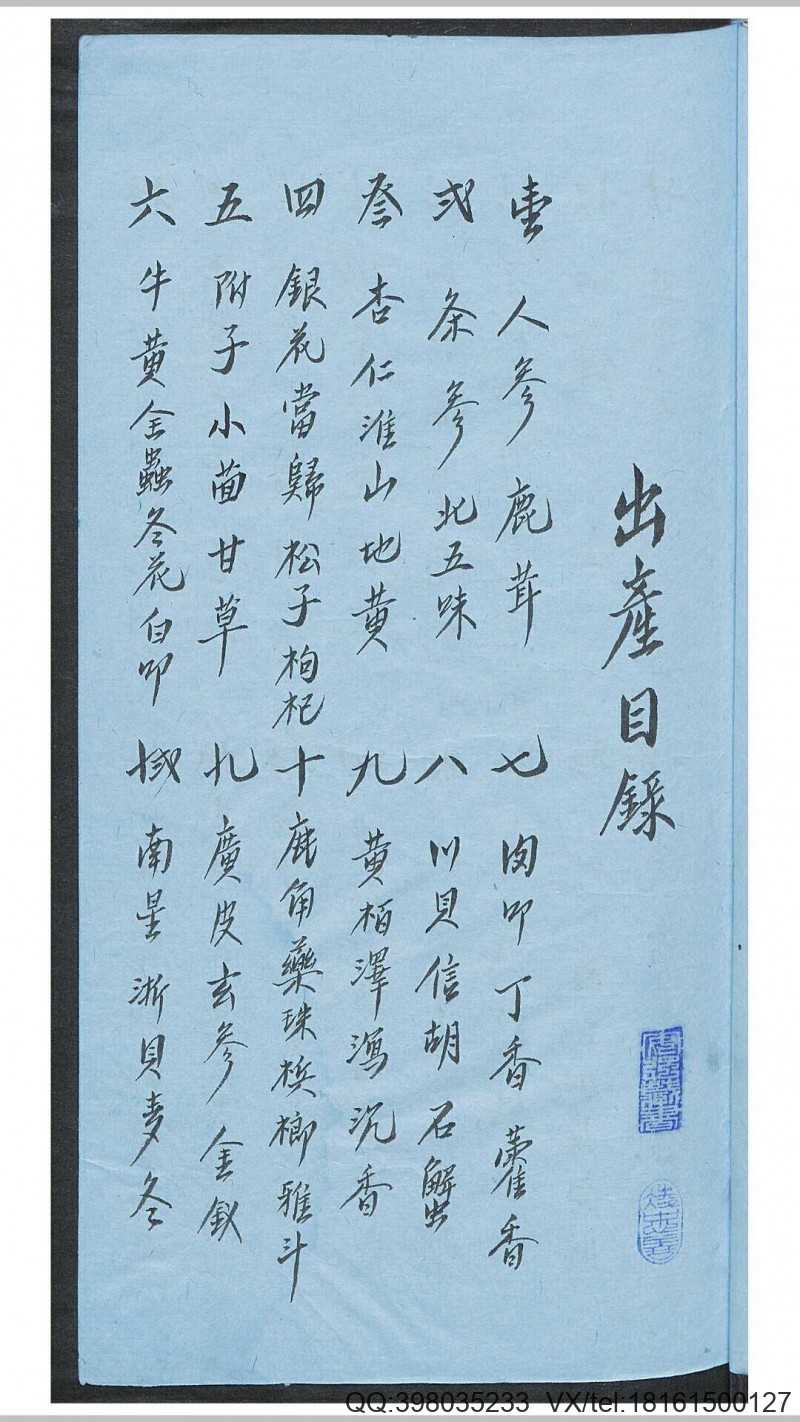 出產目錄
壹 人參 鹿茸
弍 条參 北五味
叁 杏仁淮山地黄
四 銀花當歸松子枸杞
五 附子小茴甘草
六 牛黄全蟲冬花白叩
七 肉叩丁香藿香
八 川貝信胡石蟹
九 黄栢澤瀉沉香
十 鹿角藥珠梹榔雅斗
廣皮玄參金釵
南星浙貝麥冬
QQ:398035233 VX/tel:18161500127